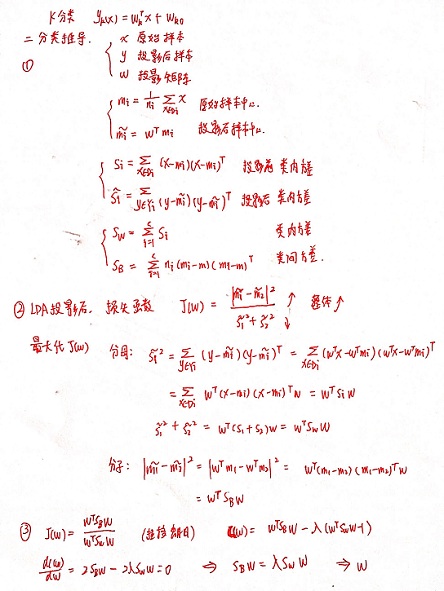 K分类 yₖ(x) = wₖᵀx + wₖ₀
二分类推导. { x 原始样本
y 投影后样本
w 投影矩阵
①
{ mᵢ = 1/nᵢ ∑_{x∈Dᵢ} x 原始样本中心.
m̃ᵢ = wᵀmᵢ 投影后样本中心.
{ Sᵢ = ∑_{x∈Dᵢ} (x-mᵢ)(x-mᵢ)ᵀ 投影前 类内方差
S̃ᵢ = ∑_{y∈Yᵢ} (y-m̃ᵢ)(y-m̃ᵢ)ᵀ 投影后 类内方差
{ S_W = ∑_{i=1}^{c} Sᵢ 类内方差
S_B = ∑_{i=1}^{c} nᵢ(mᵢ-m)(mᵢ-m)ᵀ 类间方差.
② LDA投影后. 损失函数 J(w) = |m̃₁-m̃₂|² / S̃₁²+S̃₂² ↑ ↓ 整体↑
最大化 J(w) 分母: S̃ᵢ² = ∑_{y∈Yᵢ} (y-m̃ᵢ)(y-m̃ᵢ)ᵀ = ∑_{x∈Dᵢ} (wᵀx-wᵀmᵢ)(wᵀx-wᵀmᵢ)ᵀ
= ∑_{x∈Dᵢ} wᵀ(x-mᵢ)(x-mᵢ)ᵀw = wᵀSᵢw
S̃₁² + S̃₂² = wᵀ(S₁+S₂)w = wᵀS_W w
分子: |m̃₁-m̃₂|² = |wᵀm₁-wᵀm₂|² = wᵀ(m₁-m₂)(m₁-m₂)ᵀw
= wᵀS_B w
③ J(w) = wᵀS_B w / wᵀS_W w (拉格朗日) L(w) = wᵀS_B w - λ(wᵀS_W w-1)
dL(w)/dw = 2S_B w - 2λS_W w = 0 ⇒ S_B w = λS_W w ⇒ w